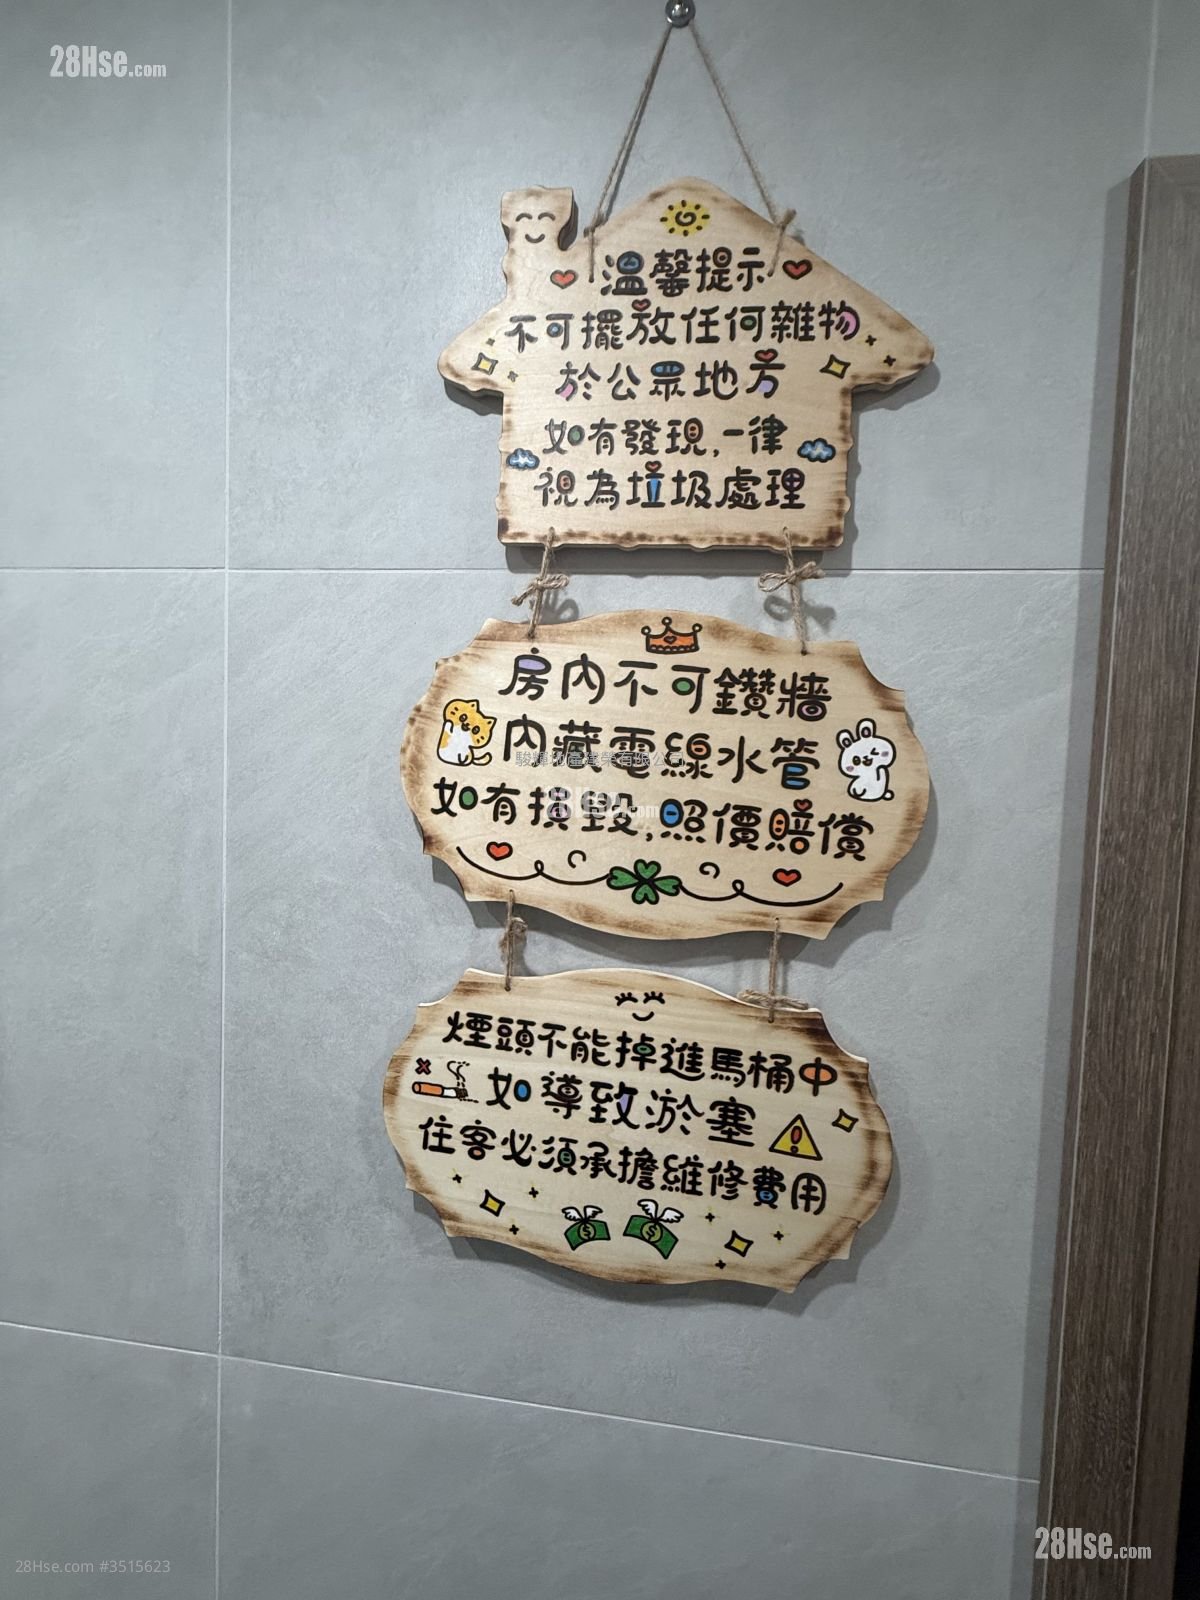 28Hse.com
溫馨提示
不可擺放任何雜物
於公眾地方
如有發現,一律
視為垃圾處理
房內不可鑽牆
內藏電線水管
如有損毀,照價賠償
煙頭不能掉進馬桶中
如導致淤塞
住客必須承擔維修費用
28Hse.com
28Hse.com #3515623
28Hse.com